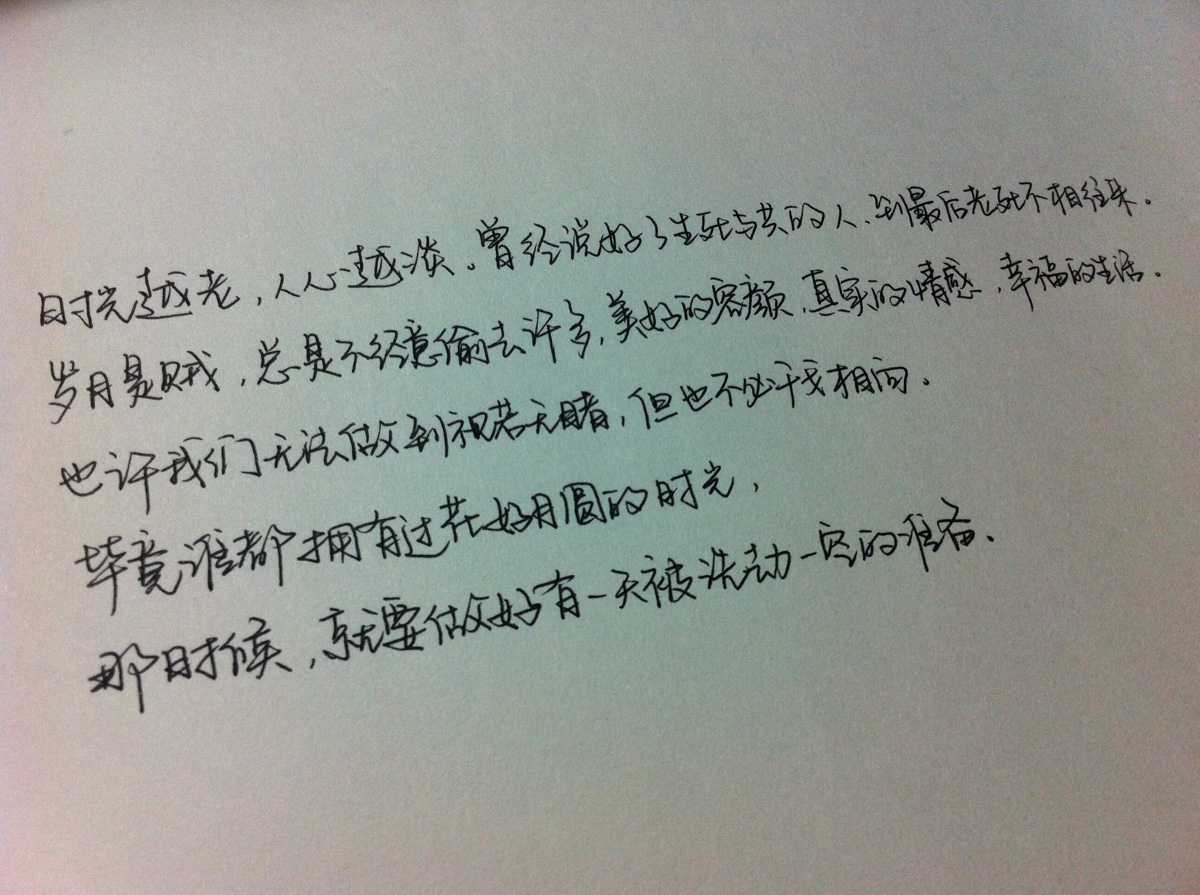 时光越老，人心越淡。曾经说好了生死与共的人、到最后老死不相往来.
岁月是贼，总是不经意偷去许多，美好的容颜，真实的情感，幸福的生活.
也许我们无法做到视若无睹，但也不必干戈相向.
毕竟谁都拥有过花好月圆的时光，
那时候，就要做好有一天被洗劫一空的准备、